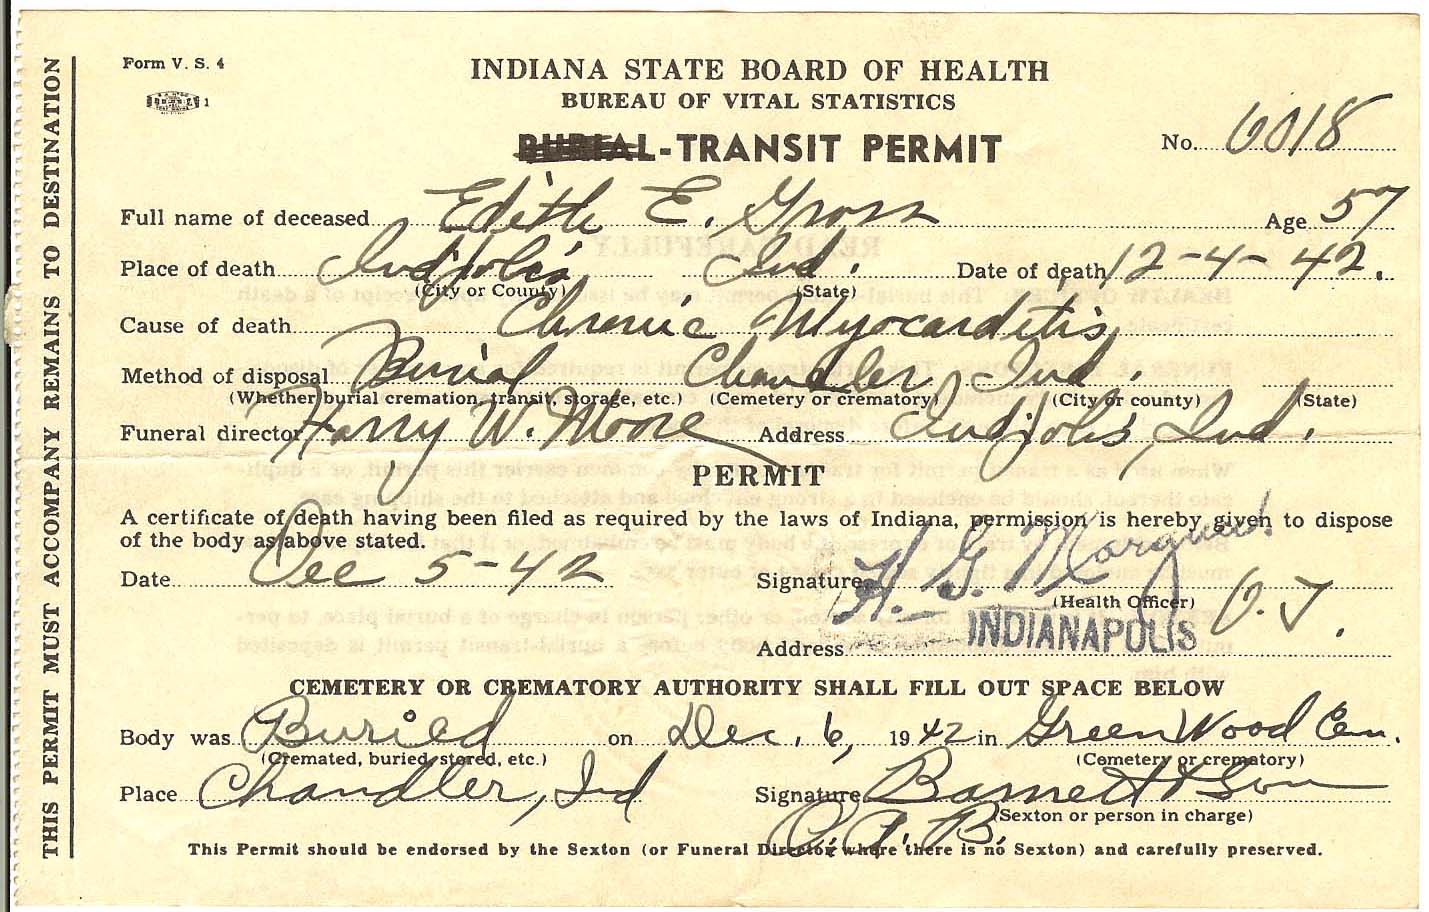 Form V. S. 4
1
INDIANA STATE BOARD OF HEALTH
BUREAU OF VITAL STATISTICS
BURIAL-TRANSIT PERMIT
No. 6018
THIS PERMIT MUST ACCOMPANY REMAINS TO DESTINATION
Full name of deceased Edith E. Gross Age 57
Place of death Indpolis Ind. Date of death 12-4-42.
(City or County) (State)
Cause of death Chronic Myocarditis
Method of disposal Burial Chandler Ind.
(Whether burial cremation, transit, storage, etc.) (Cemetery or crematory) (City or county) (State)
Funeral director Harry W. Moore Address Indpolis, Ind.
PERMIT
A certificate of death having been filed as required by the laws of Indiana, permission is hereby given to dispose
of the body as above stated.
Date Dec 5-42 Signature H. G. 
(Health Officer)
Address INDIANAPOLIS
CEMETERY OR CREMATORY AUTHORITY SHALL FILL OUT SPACE BELOW
Body was Buried on Dec. 6, 1942 in GreenWood Cem.
(Cremated, buried, stored, etc.) (Cemetery or crematory)
Place Chandler, Ind Signature Barnett & Son
(Sexton or person in charge)
This Permit should be endorsed by the Sexton (or Funeral Director where there is no Sexton) and carefully preserved.